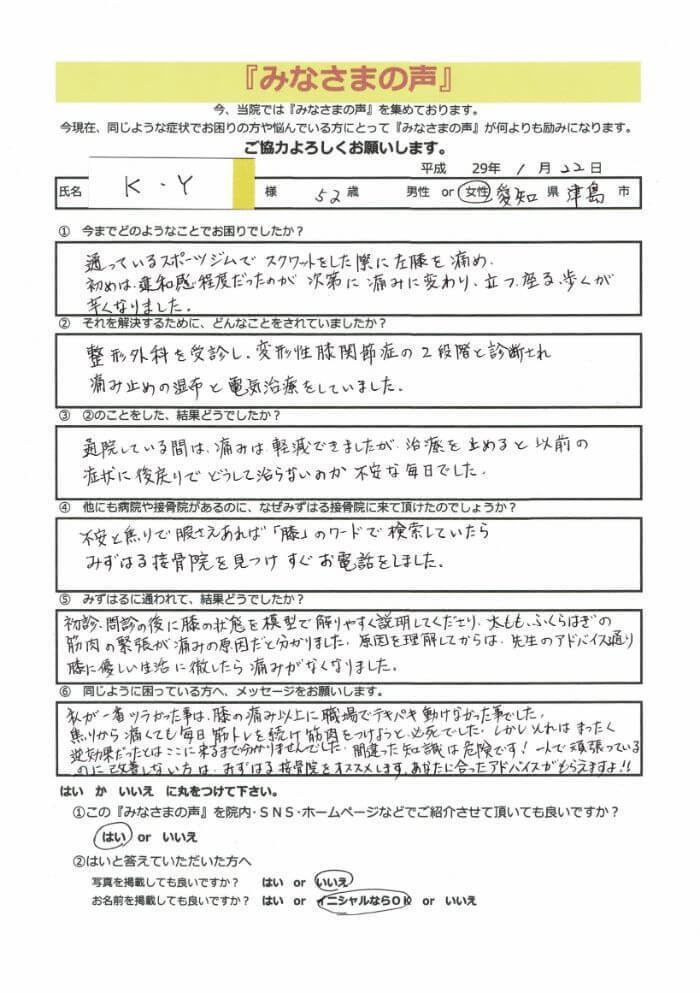 『みなさまの声』
今、当院では『みなさまの声』を集めております。
今現在、同じような症状でお困りの方や悩んでいる方にとって『みなさまの声』が何よりも励みになります。
ご協力よろしくお願いします。
平成 29年 1月 22日
氏名 K・Y 様 52歳 男性 or 女性 愛知県 津島市
① 今までどのようなことでお困りでしたか?
通っているスポーツジムで スクワットをした際に左膝を痛め、
初めは、違和感程度だったのが 次第に 痛みに変わり、立つ、座る、歩くが
辛くなりました。
② それを解決するために、どんなことをされていましたか?
整形外科を受診し、変形性膝関節症の2段階と診断され
痛み止めの湿布と電気治療をしていました。
③ ②のことをした、結果どうでしたか?
通院している間は、痛みは軽減できましたが、治療を止めると以前の
症状に後戻りで どうして治らないのか 不安な毎日でした。
④ 他にも病院や接骨院があるのに、なぜみずはる接骨院に来て頂けたのでしょうか?
不安と焦りで 暇さえあれば「膝」のワードで検索していたら
みずはる接骨院を見つけ すぐお電話をしました。
⑤ みずはるに通われて、結果どうでしたか?
初診、問診の後に膝の状態を模型で解りやすく説明してくださり、太もも、ふくらはぎの
筋肉の緊張が痛みの原因だと分かりました。原因を理解してからは、先生のアドバイス通り
膝に優しい生活に徹したら痛みがなくなりました。
⑥ 同じように困っている方へ、メッセージをお願いします。
私が一番ツラかった事は、膝の痛み以上に職場でテキパキ動けなかった事でした。
焦りから痛くても毎日筋トレを続け筋肉をつけようと、必死でした。しかしそれはまったく
逆効果だったとはここに来るまで分かりませんでした。間違った知識は危険です!一人で頑張っている
のに改善しない方は、みずはる接骨院をオススメします。あなたに合ったアドバイスがもらえますよ!!
はい か いいえ に丸をつけて下さい。
①この『みなさまの声』を院内・SNS・ホームページなどでご紹介させて頂いても良いですか?
はい or いいえ
②はいと答えていただいた方へ
写真を掲載しても良いですか? はい or いいえ
お名前を掲載しても良いですか? はい or イニシャルならOK or いいえ